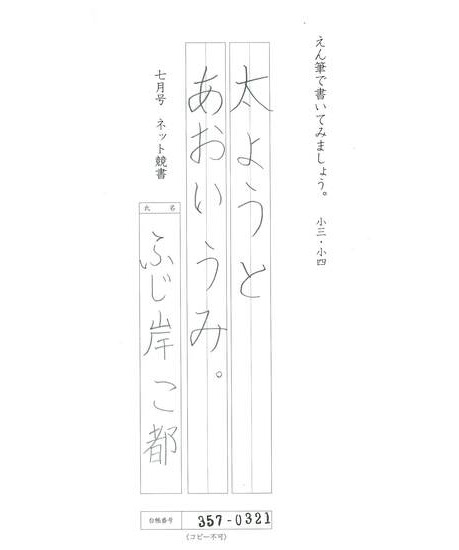 えん筆で書いてみましょう。 小三・小四
太ようと
あおいうみ。
七月号 ネット競書
氏名
ふじ岸こ都
台帳番号 357-0321
(コピー不可)